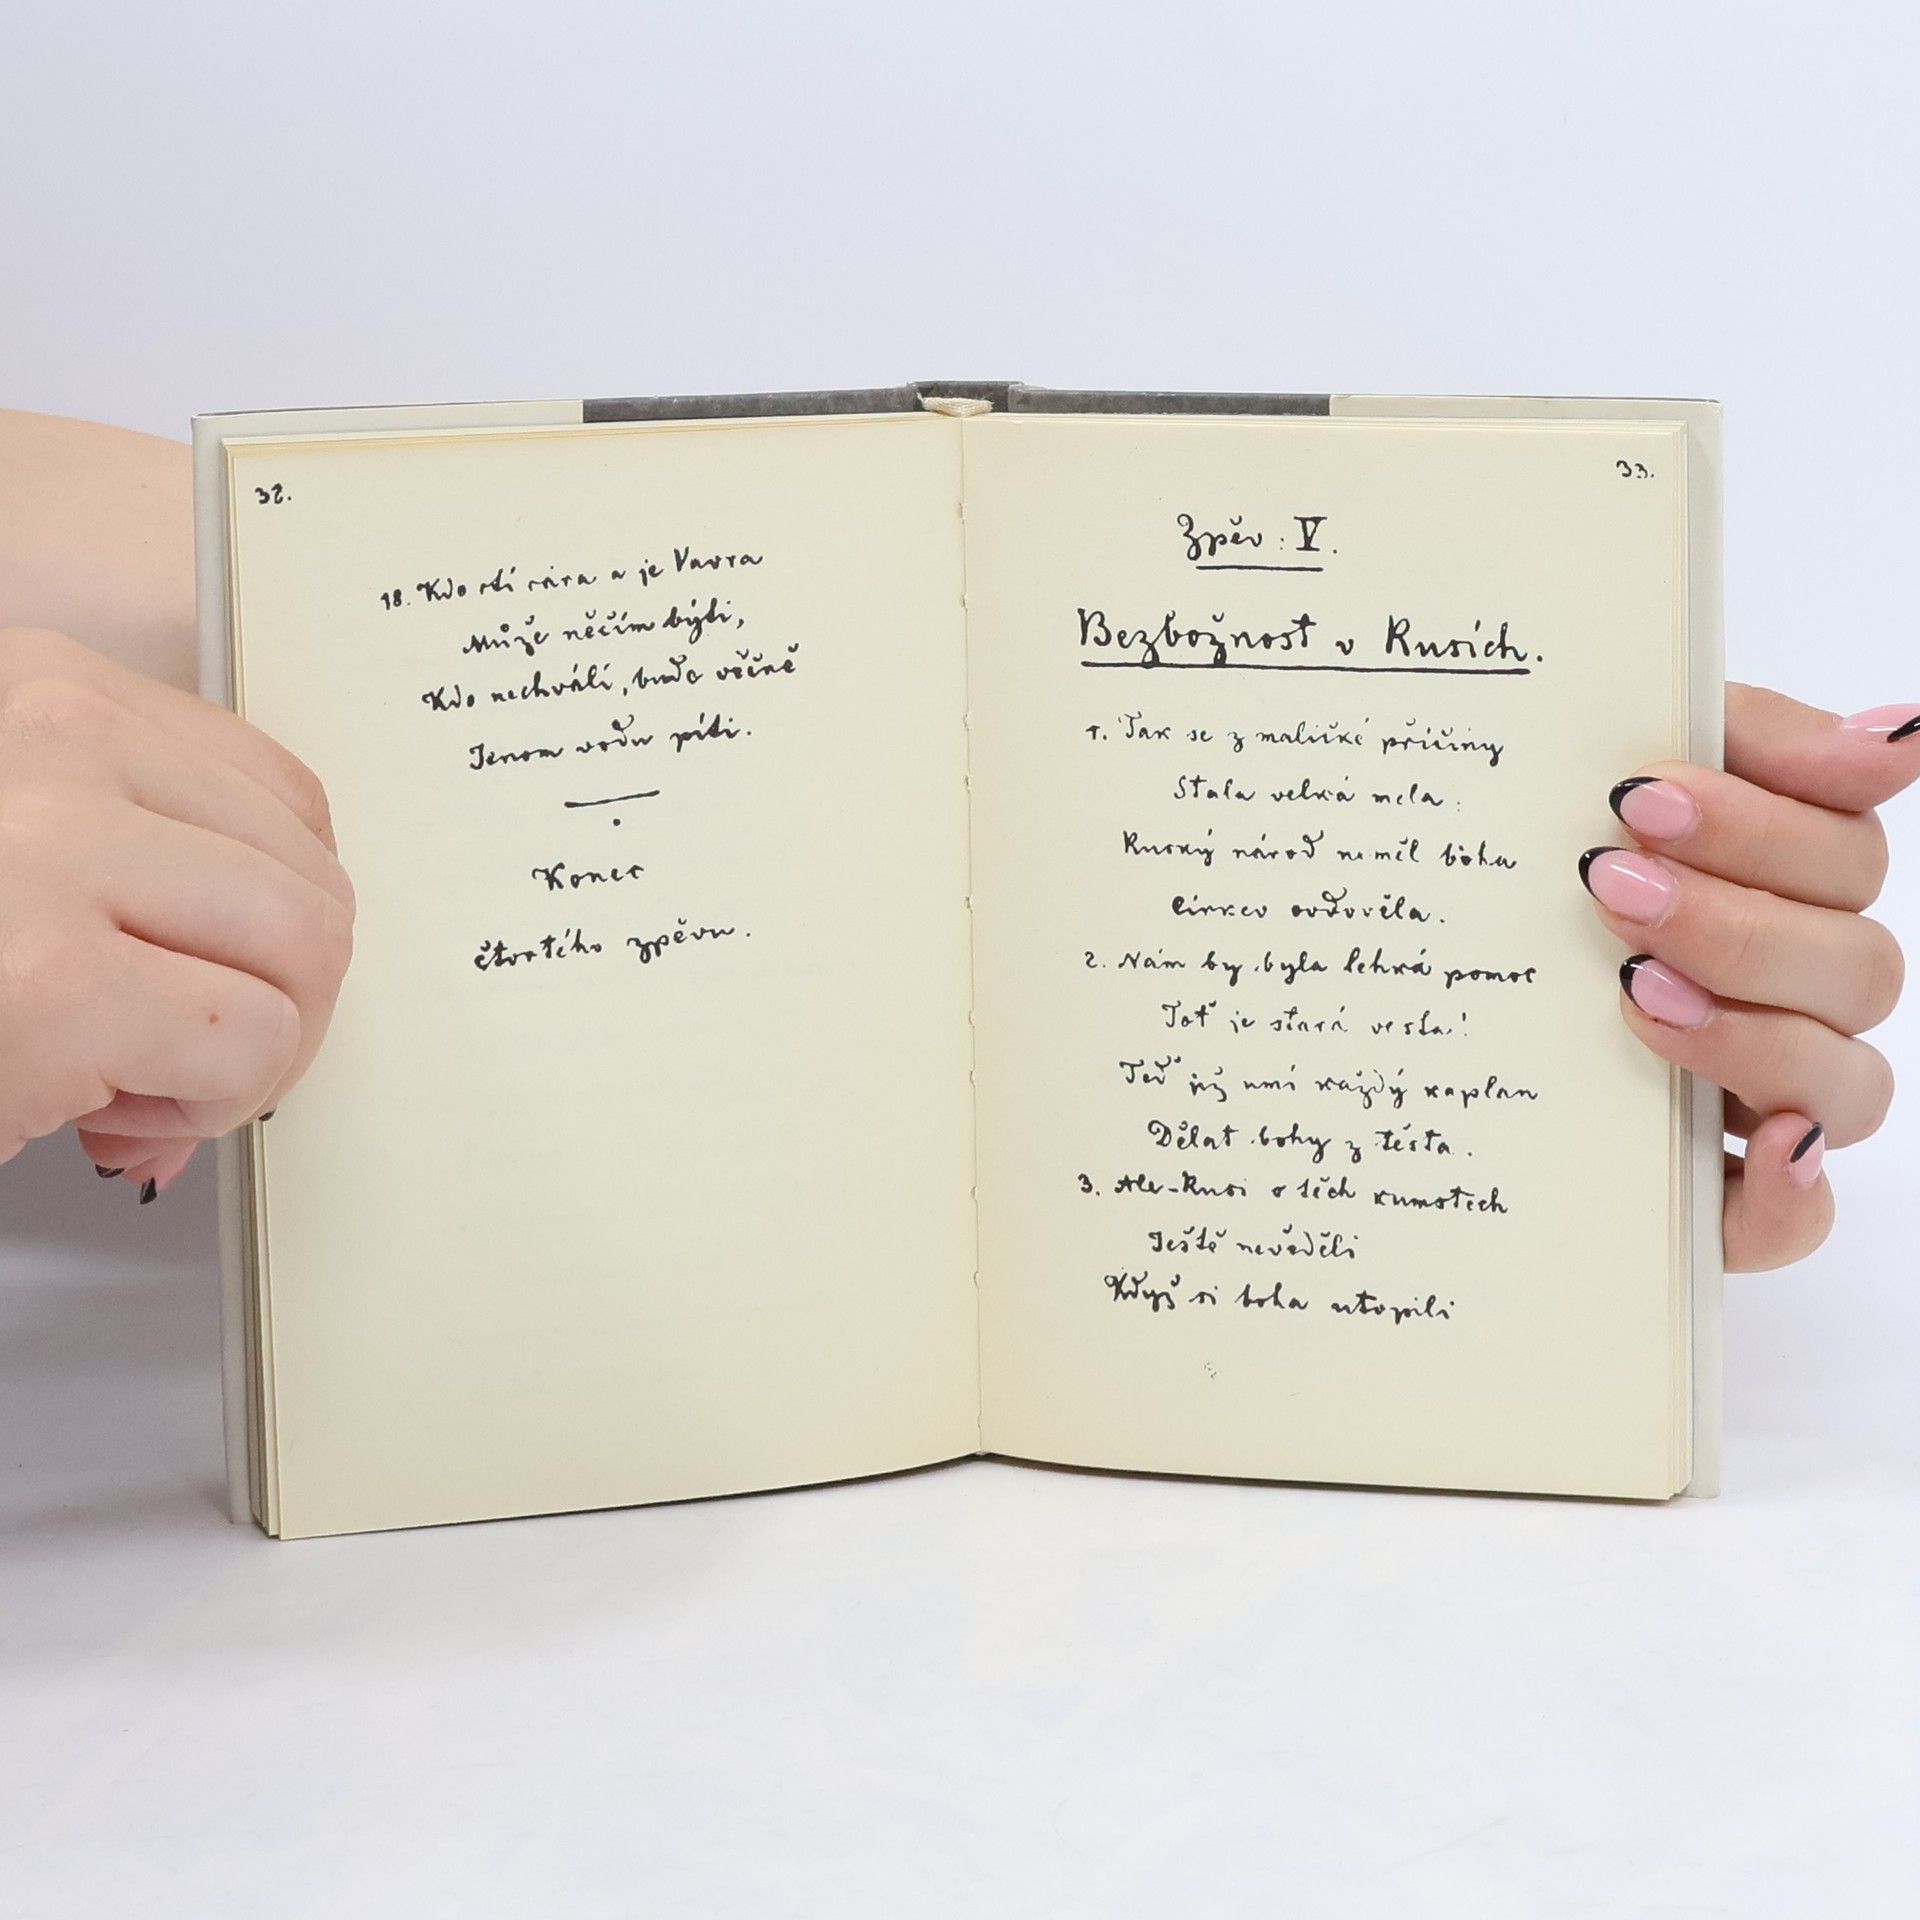 32.
18. Kdo ctí cára a je Vavra
Může něčím býti,
Kdo nechválí, bude věčně
Jenom vodu píti.
Konec
čtvrtého zpěvu.
33.
Zpěv: V.
Bezbožnost v Rusích.
1. Tak se z maličké příčiny
Stala velká mela:
Ruský národ neměl boha
Cirkev ovdověla.
2. Nám by byla lehká pomoc
Toť je stará vesta!
Teď již umí každý kaplan
Dělat bohy z těsta.
3. Ale Rusi o těch kumstech
Ještě nevěděli
Když si boha utopili